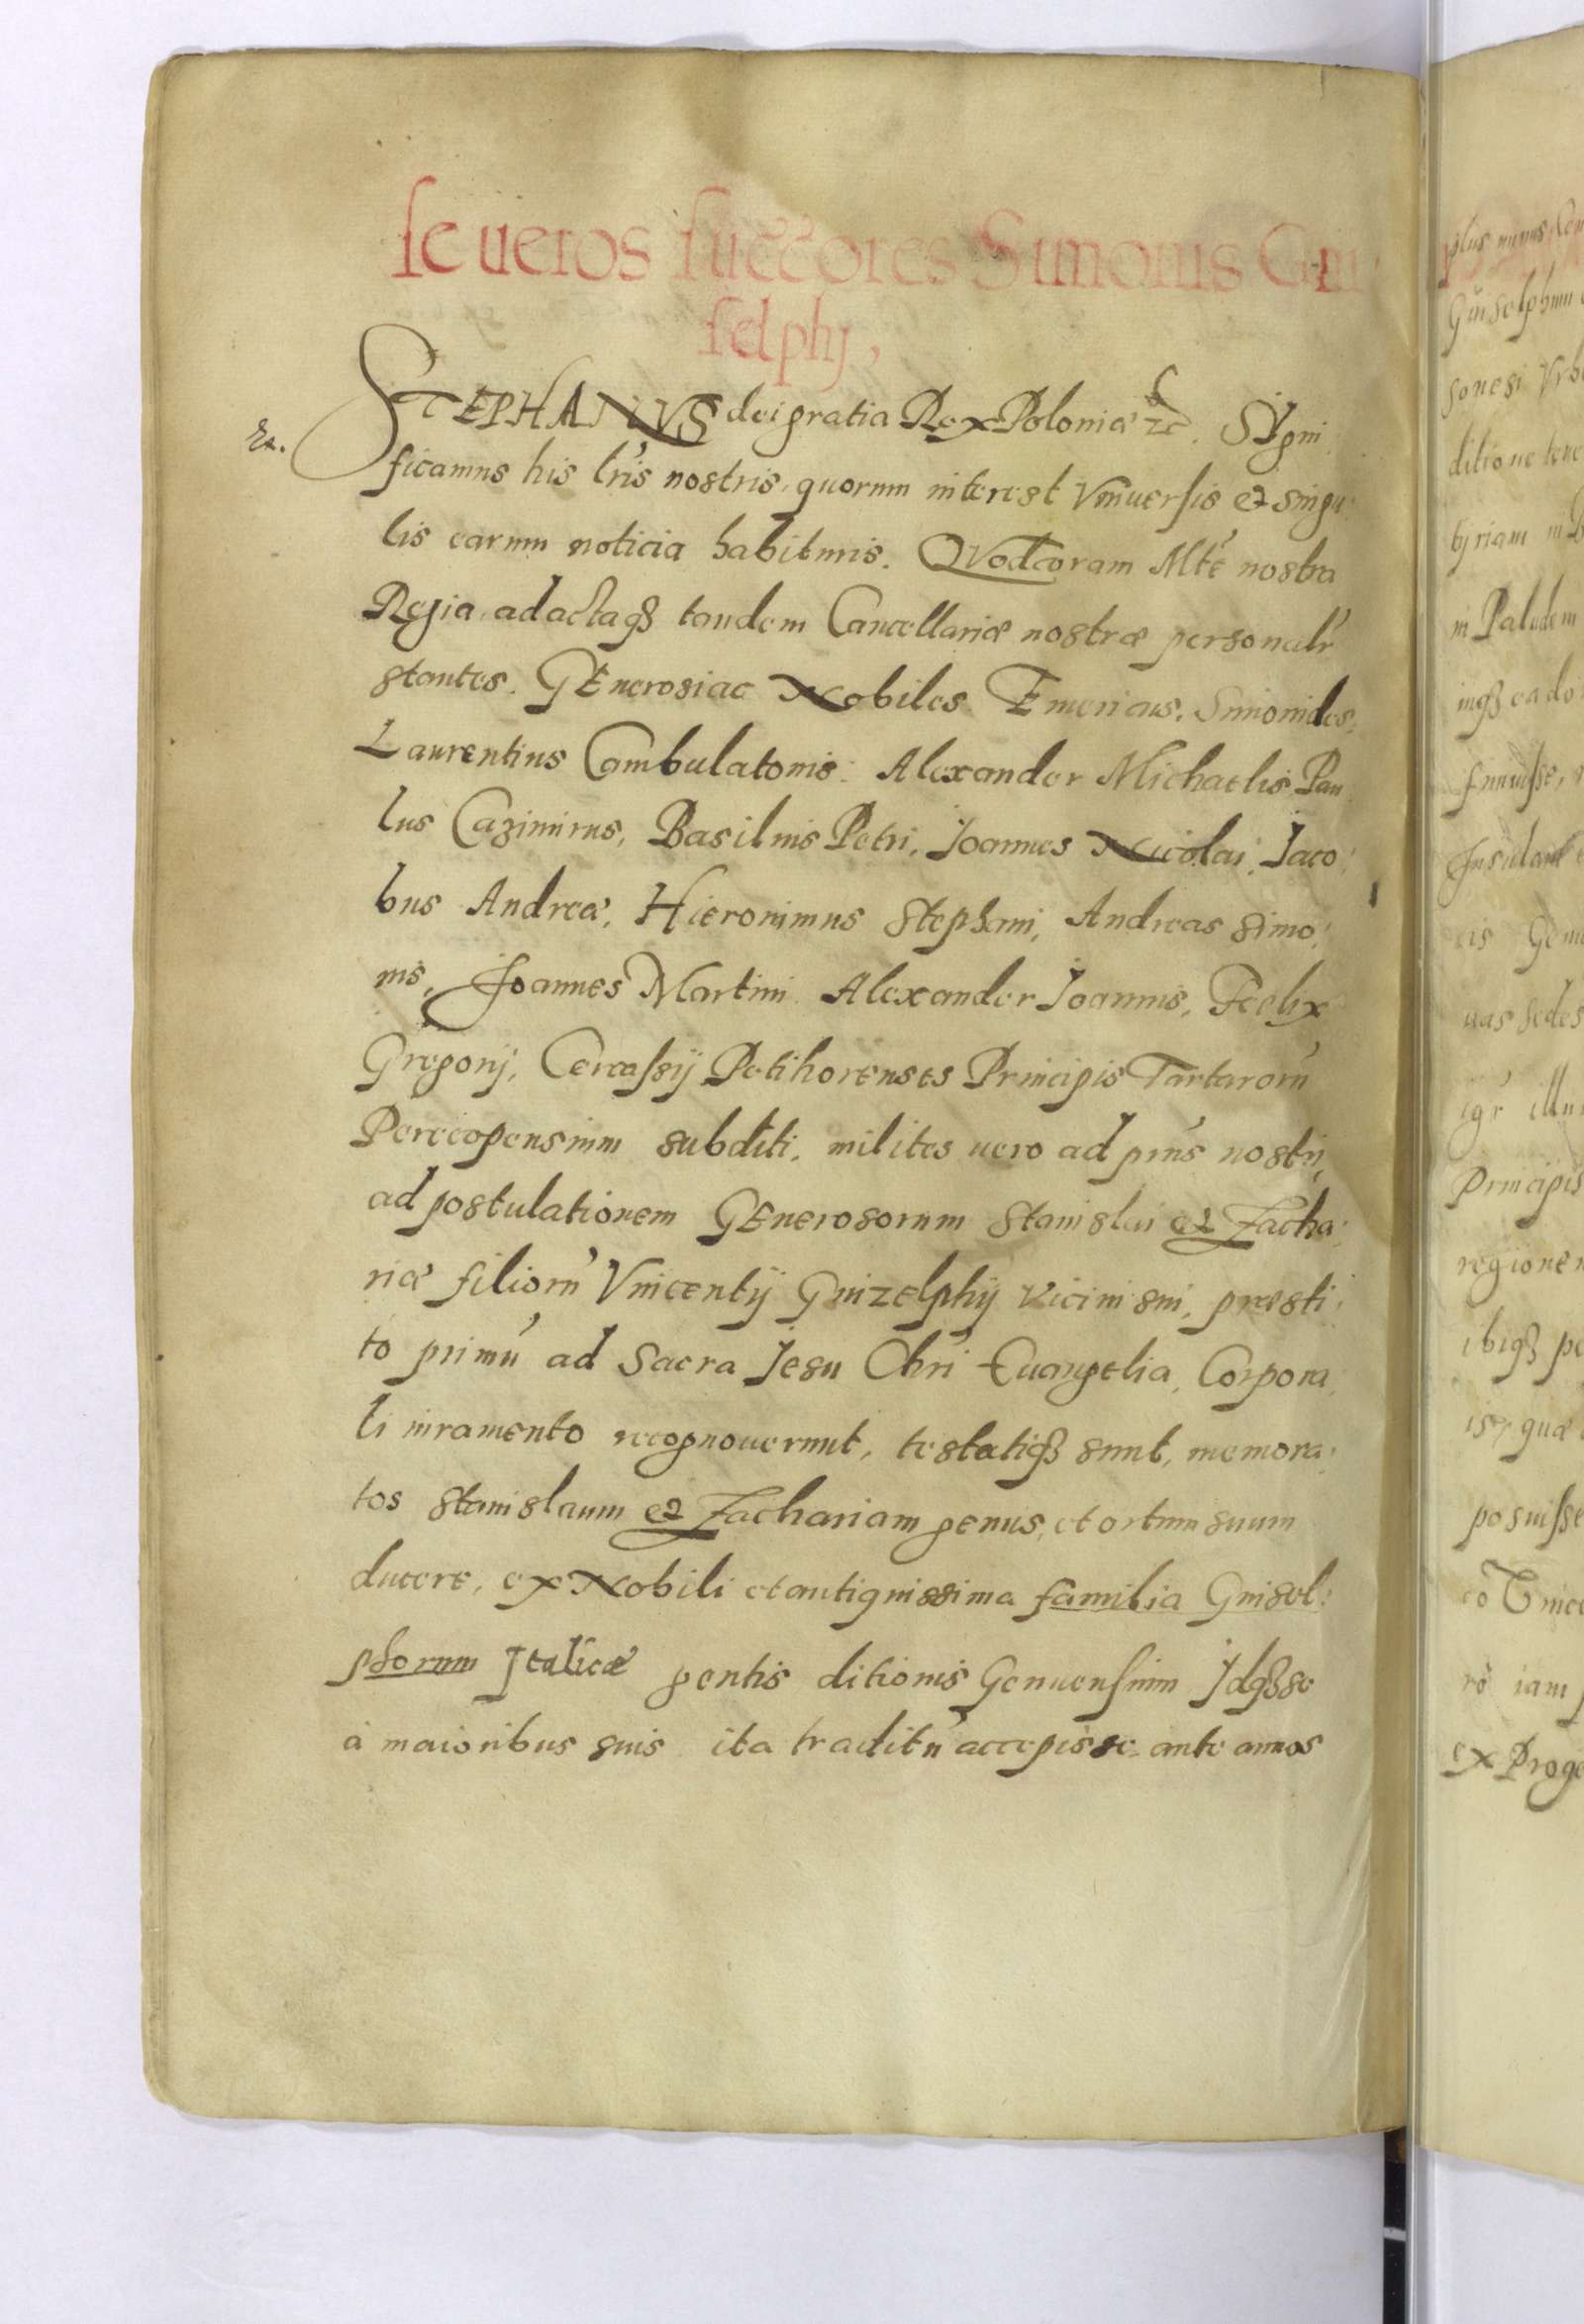 se ueros succores Simonis Gui
selphj,
STEPHANVS dei gratia Rex Poloniæ etc. SYgni
ficamus his lris nostris, quorum interest Vniuersis et singu
lis earum noticia habituris. QVod coram Mte nostra
Regia, ad actaqß tandem Cancellariæ nostræ personalr
stantes. GEnerosi ac Nobiles Emericus, Simonides,
Laurentius Cambulatonis. Alexander Michaelis Pau
lus Cazimirus, Basilius Petri, Joannes Nicolai, Jaco:
bus Andreæ, Hieronimus Stephani, Andreas Simo:
nis, Joannes Martini Alexander Joannis, Foelix
Gregorij, Cercassij Petihorenses Principis Tartarorū
Perecopensium subditi, milites uero ad prns nostri,
ad postulationem GEnerosorum Stanislai et Zacha:
riæ filiorū Vincentij Guizelphij vicini sui, præsti:
to primū ad Sacra Jesu Chri Euangelia, Corpora
li iuramento recognouerunt, testatiqß sunt, memora:
tos Stanislaum et Zachariam genus, et ortum suum
ducere, ex Nobili et antiquissima familia Guisel:
phorum Italicæ gentis ditionis Genuensium Idqß se
à maioribus suis ita traditū accepisse ante annos
plus minus
Guiselphum
sonesi Vrb
ditione tene
in Paludem
inqß ea do
Insulam
cis Genu
uas sedes
Principis
regionem
ibiqß pe
posuisse
rò iam
ex Proge